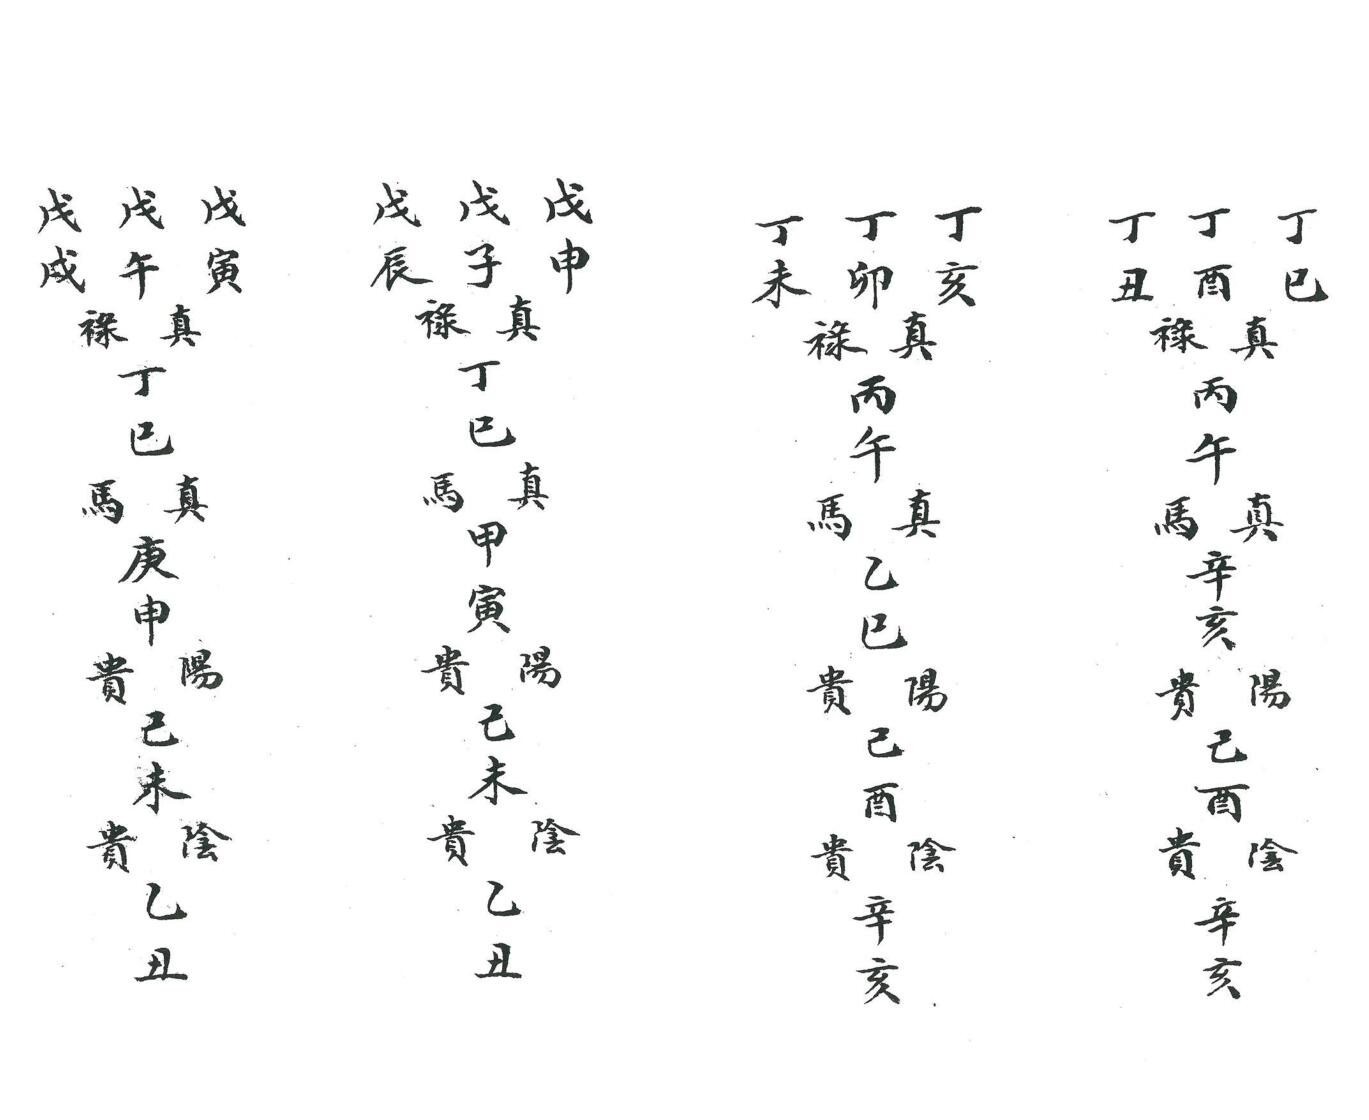 丁巳
丁酉
丁丑
真祿
丙午
真馬
辛亥
陽貴
己酉
陰貴
辛亥
丁亥
丁卯
丁未
真祿
丙午
真馬
乙巳
陽貴
己酉
陰貴
辛亥
戊申
戊子
戊辰
真祿
丁巳
真馬
甲寅
陽貴
己未
陰貴
乙丑
戊寅
戊午
戊戌
真祿
丁巳
真馬
庚申
陽貴
己未
陰貴
乙丑